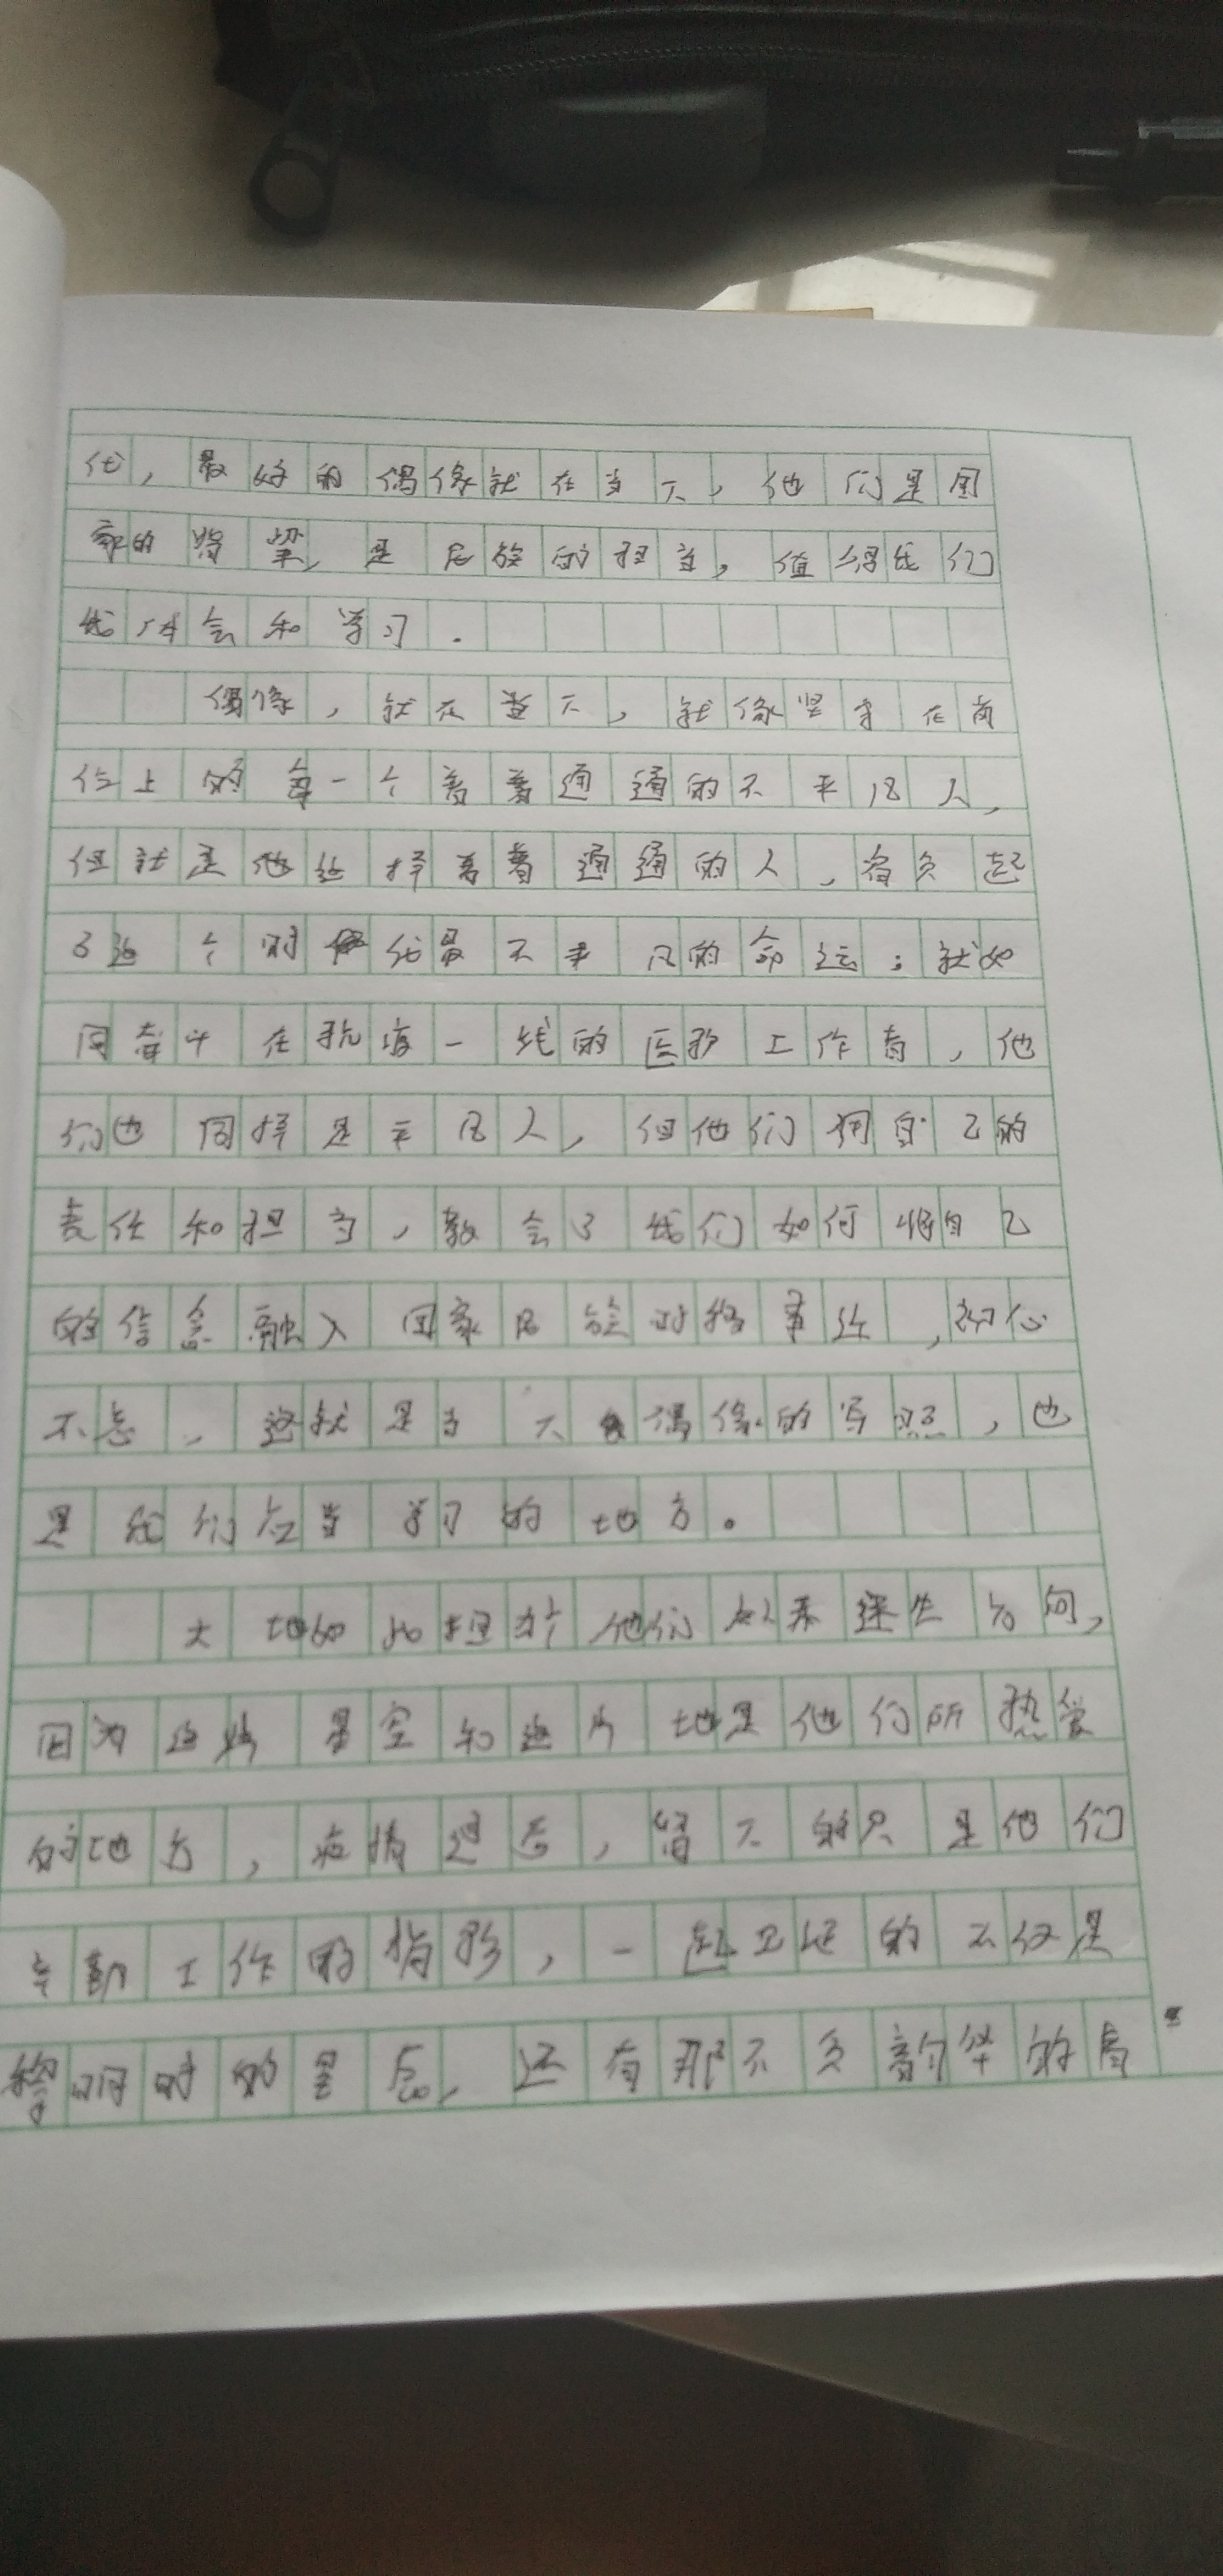 代，最好的偶像就在当下，他们是国
家的脊梁，是民族的担当，值得我们
我体会和学习。
偶像，就在当下，就像坚守在岗
位上的每一个普普通通的不平凡人，
但就是他这样普普通通的人，肩负起
了这个时代最不平凡的命运；就如
同奋斗在抗疫一线的医务工作者，他
们也同样是平凡人，但他们用自己的
责任和担当，教会了我们如何将自己
的信念融入国家民族
不忘，这就是当下偶像的写照，也
是我们应当学习的地方。
大地的 他们从未迷失方向，
因为这片星空和这片土地是他们所热爱
的地方，疫情过后，留下的只是他们
辛勤工作的背影，一起 的不仅是
黎明时的星辰，还有那不负韵华的肩